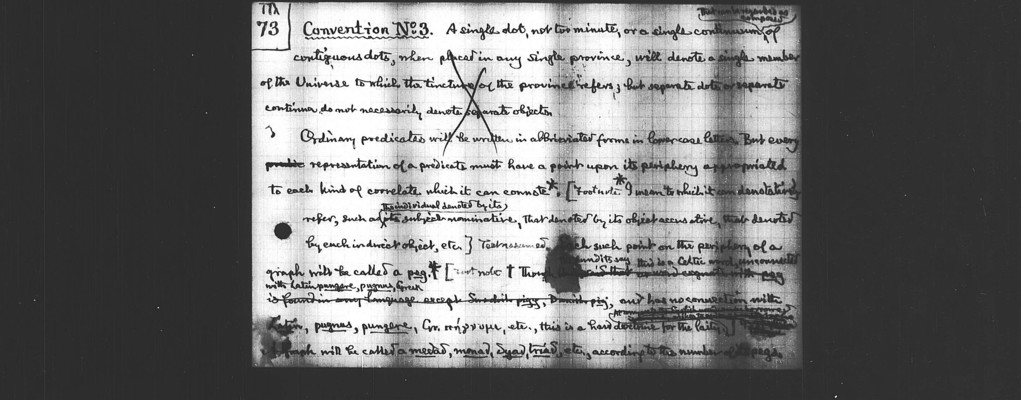 73
that can be regarded as composed
Convention No 3. A single dot, not too minute, or a single continuum of
contiguous dots, when placed in any single province, will denote a single member
of the Universe to which the tincture of the province refers; but separate dots or separate
continua do not necessarily denote separate objects
Ordinary predicates will be written in abbreviated forms in lower case letters. But every
representation of a predicate must have a point upon its periphery appropriated
to each kind of correlate which it can connote*. [Footnote * I mean to which it can denotatively
the individual denoted by its
refer, such as its subject nominative, that denoted by its object accusative, that denoted
by each indirect object, etc.] Each such point on the periphery of a
pundits say this is a Celtic word, unconnected
graph will be called a peg.* [Footnote † Though said that no word cognate with peg
with Latin pungere, pugnus, Greek
is found in any language except Swedish pigg, Danish pig, and has no connection with
Latin, pugnus, pungere, Gr. πήγνυμι, etc., this is a hard doctrine for the laity.]
graph will be called a medad, monad, dyad, triad, etc, according to the number of its pegs.